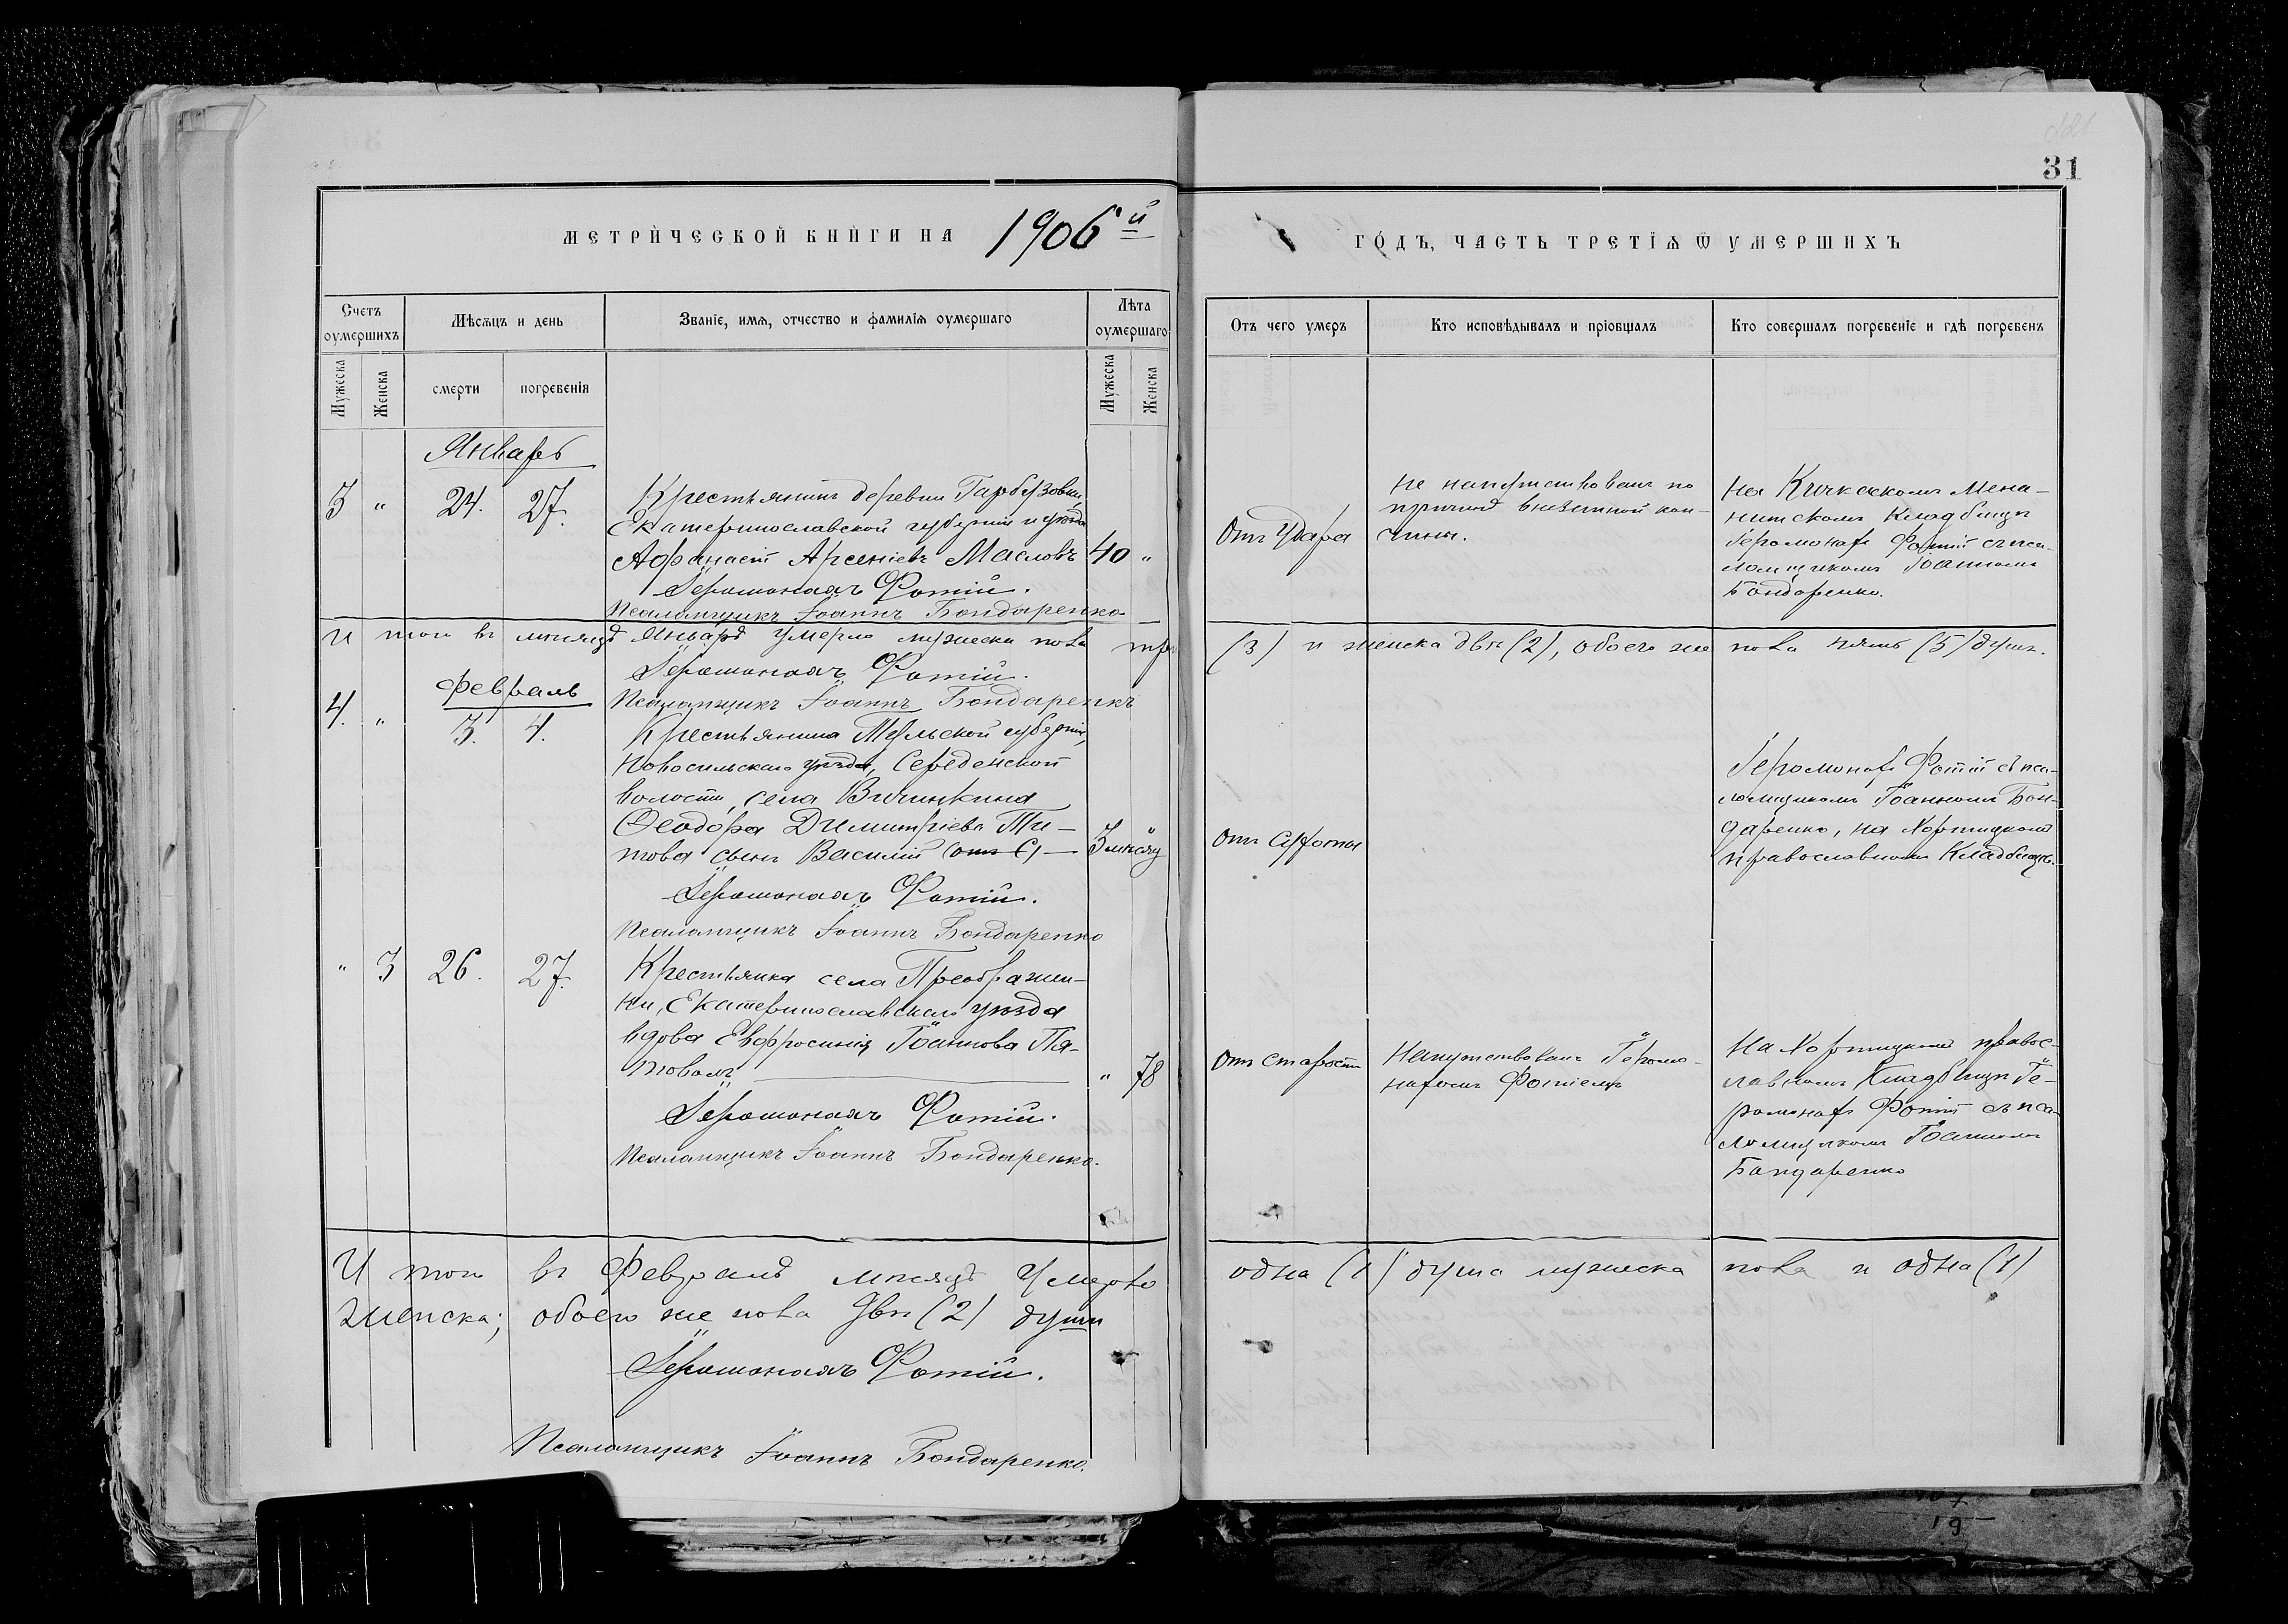 31
МЕТРИЧЕСКОЙ КНИГИ НА 1906й ГОДЪ, ЧАСТЬ ТРЕТІЯ Ѿ УМЕРШИХЪ
Счетъ оумершихъ
Мѣсяцъ и день
Званіе, имя, отчество и фамилія оумершаго
Лѣта оумершаго
Отъ чего умеръ
Кто исповѣдывалъ и пріобщалъ
Кто совершалъ погребеніе и гдѣ погребенъ
Мужеска
Женска
смерти
погребенія
Мужеска
Женска
Январь
3 " 24. 27.
Крестьянинъ деревни Гарбузовки
Екатеринославской губерніи и уѣзда
Афанасій Арсеніевъ Масловъ 40 "
Іеромонахъ Фотій.
Псаломщикъ Іоаннъ Бондаренко
Отъ удара
не напутствованъ по
причинѣ внезапной кон-
чины.
На Кичкаскомъ Мена-
нитскомъ кладбищѣ
Іеромонахъ Фотій съ пса-
ломщикомъ Іоанномъ
Бондаренко.
Итого въ мѣсяцѣ Январѣ умерло мужеска пола три (3) и женска двѣ (2), обоего же пола пять (5) душъ.
Іеромонахъ Фотій.
Псаломщикъ Іоаннъ Бондаренкъ
Февраль
4. " 3. 4.
Крестьянина Тульской губерніи,
Новосильскаго уѣзда, Середенской
волости, села Вичинкина
Ѳеодора Димитріева Ти-
това сынъ Василій (отъ С) 3 мѣсяц "
Іеромонахъ Фотій.
Псаломщикъ Іоаннъ Бондаренко
отъ
Іеромонахъ Фотій съ пса-
ломщикомъ Іоанномъ Бон-
даренко, на Хортицкомъ
православномъ кладбищѣ.
" 3 26. 27.
Крестьянка села Преображен-
ки, Екатеринославскаго уѣзда
вдова Евфросинія Іоаннова Па-
" 78
Іеромонахъ Фотій.
Псаломщикъ Іоаннъ Бондаренко.
Отъ старости
Напутствована Іеромо-
нахомъ Фотіемъ
На Хортицкомъ правос-
лавномъ кладбищѣ Іе-
ромонахъ Фотій съ пса-
ломщикомъ Іоанномъ
Бондаренко
Итого въ Февралѣ мѣсяцѣ умерло одна (1) душа мужеска пола и одна (1)
женска; обоего же пола двѣ (2) души
Іеромонахъ Фотій.
Псаломщикъ Іоаннъ Бондаренко.
19